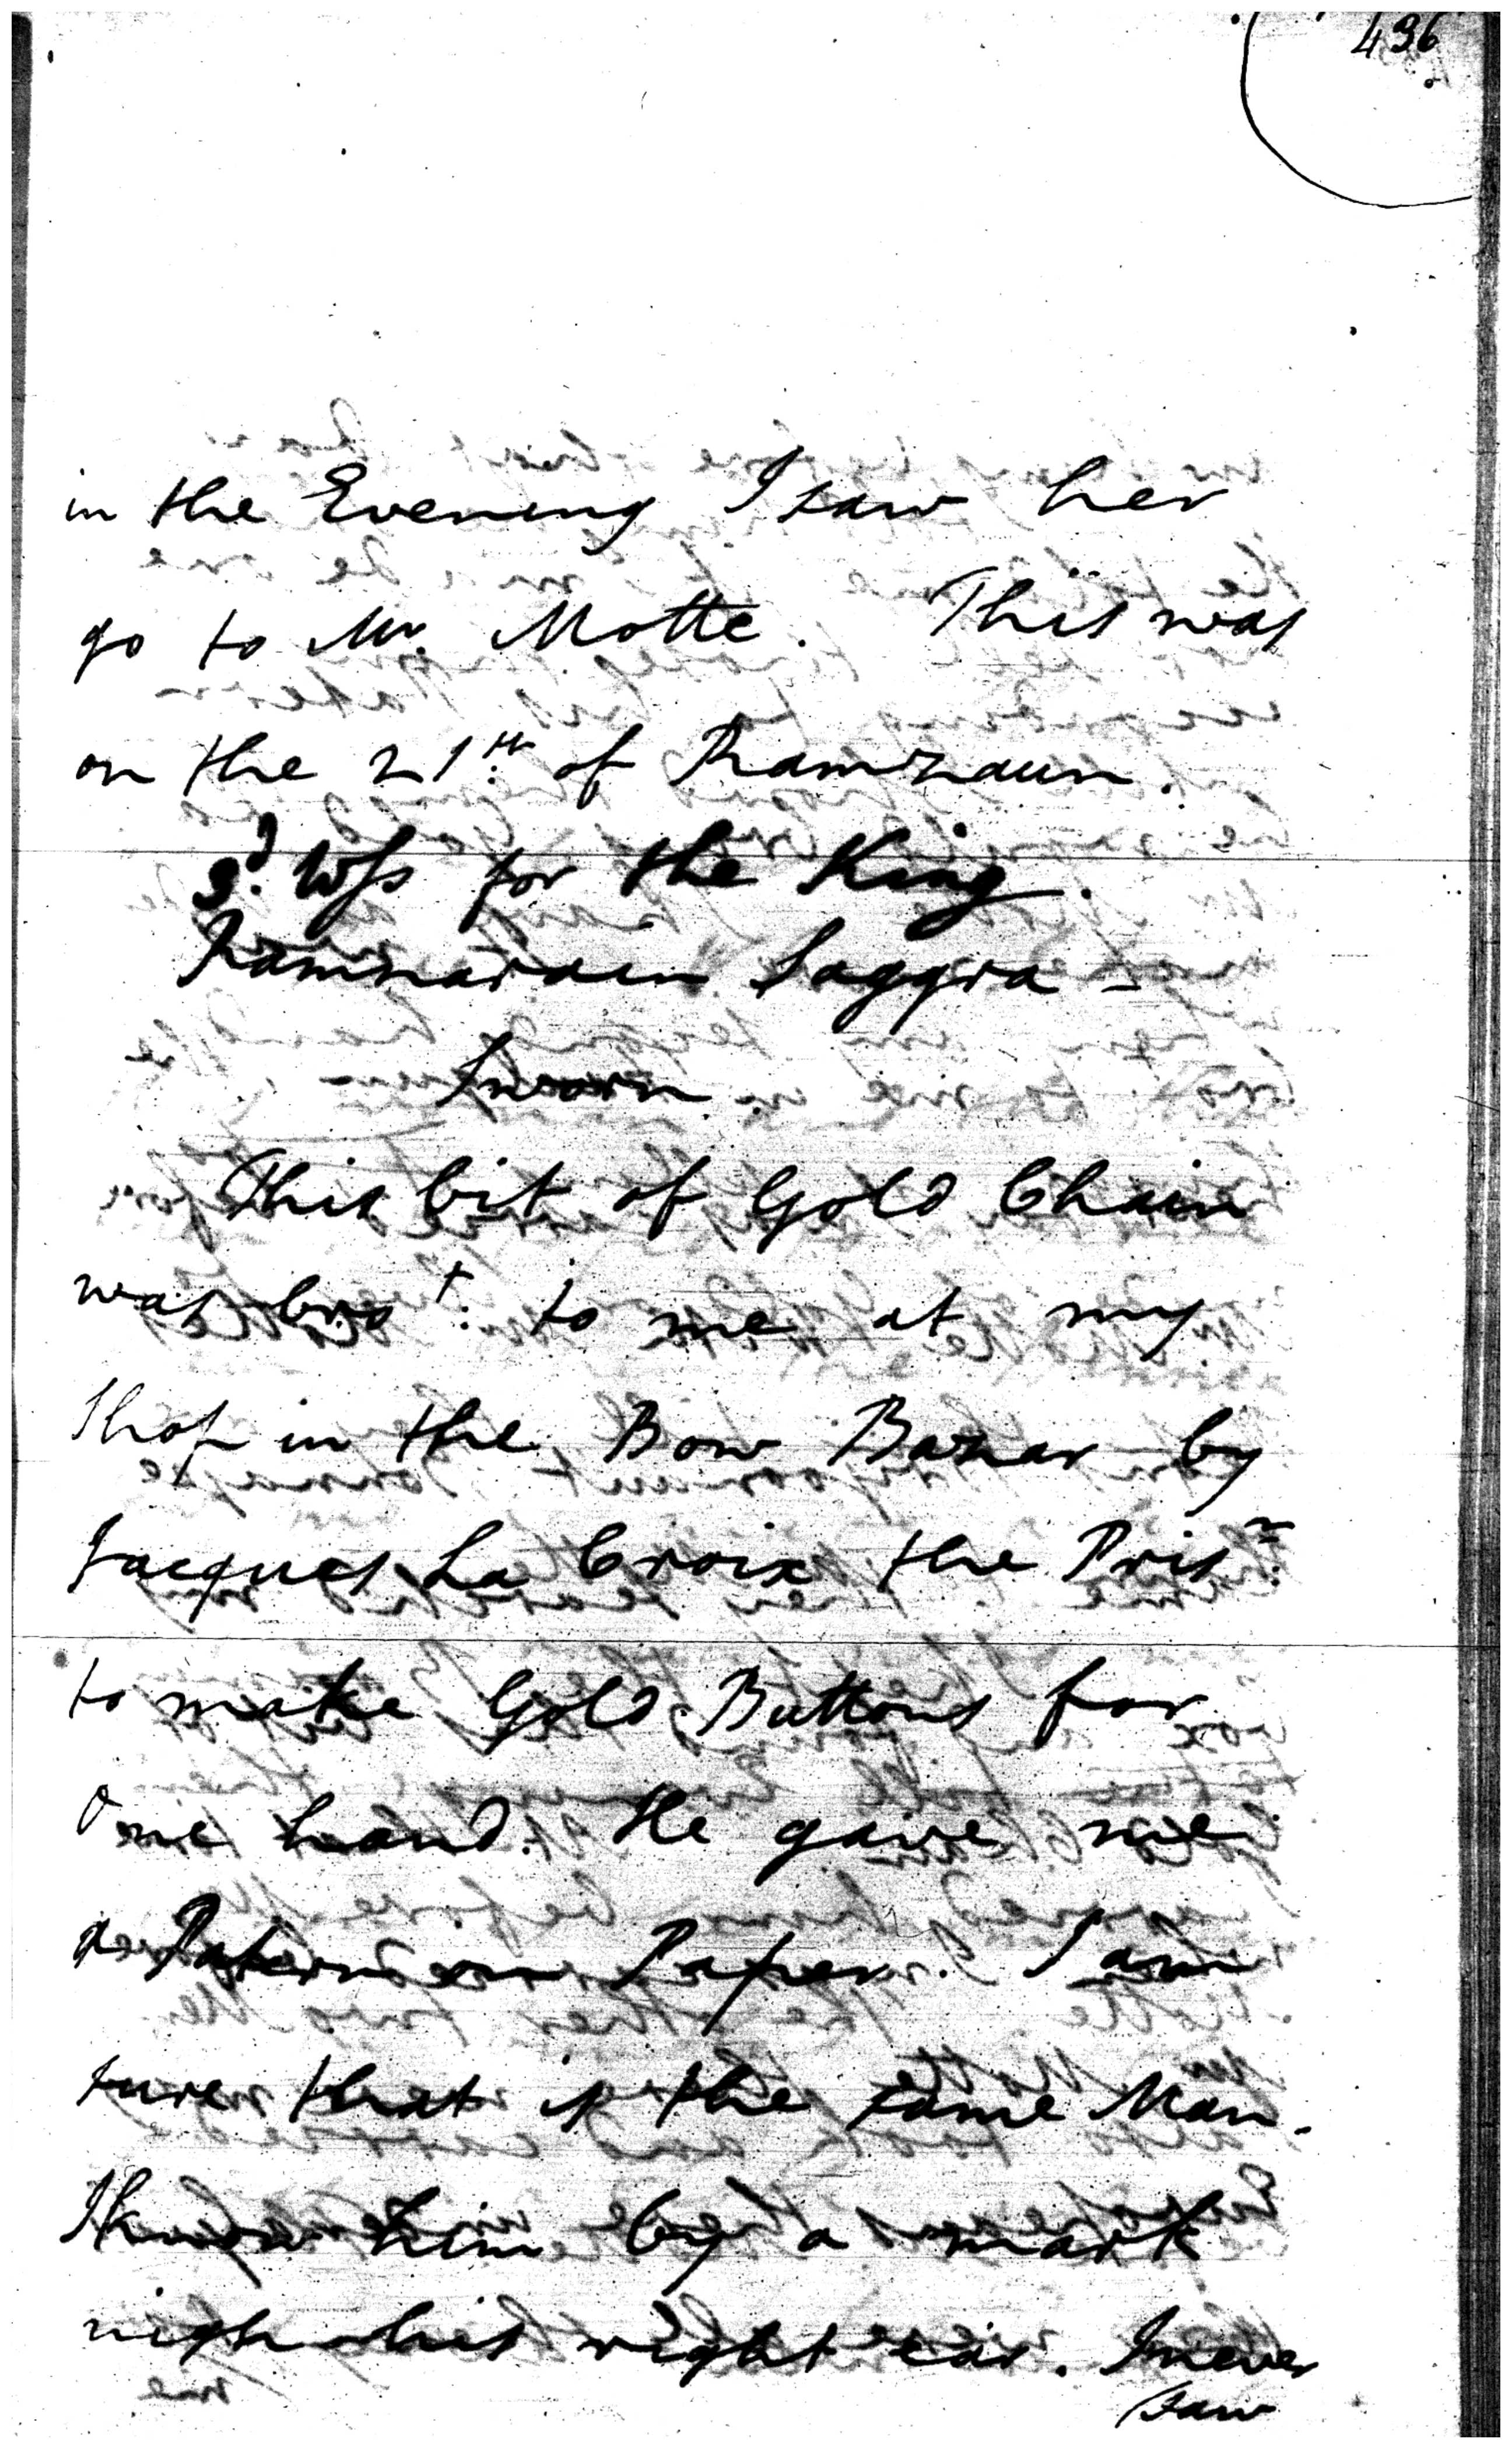 436
in the Evening I saw her
go to Mr. Motte. This was
on the 21st. of Ramzaun.
3d. Wss for the King.
Ramnarain Saggra -
Sworn.
This bit of Gold Chain
was bro't: to me at my
Shop in the Bow Bazar by
Jacques La Croix the Prisr:
to make Gold Buttons for
One hand. He gave me
a Patern on Paper. I am
sure that is the same Man.
I know him by a mark
nigh his right ear. I never
saw